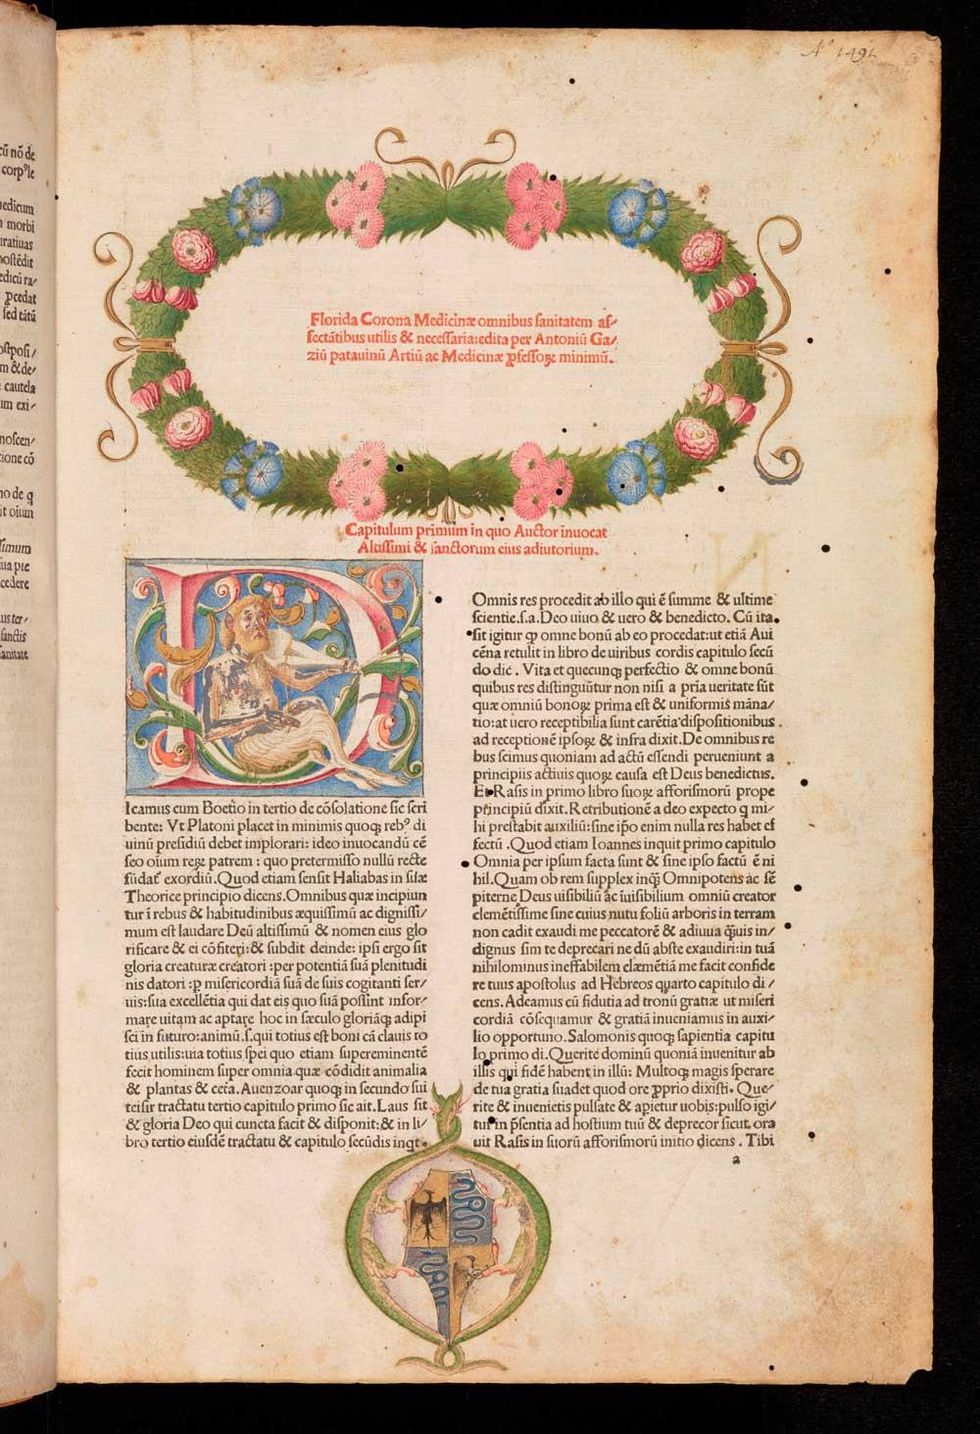 Aº 1491
cū nō de
corpꝰle
medicum
morbi
ratiuas
oſtēdit
edicū ra⸗
ꝓcedat
ſed tātū
oſtpoſi⸗
m & de⸗
cautela
um exi⸗
noſcen⸗
ione cō
no de q
it oīum
ſimum
ua pie
cedere
us ter⸗
ſanctis
ſanitate
Florida Corona Medicinæ omnibus ſanitatem af⸗
fectātibus utilis & neceſſaria:edita per Antoniū Ga⸗
ziū patauinū Artiū ac Medicinæ ꝓfeſſoꝝ minimū.
Capitulum primum in quo Auctor inuocat
Altiſſimi & ſanctorum eius adiutorium.
D
Icamus cum Boetio in tertio de cōſolatione ſic ſcri
bente: Vt Platoni placet in minimis quoqꝫ rebꝰ di
uinū preſidiū debet implorari: ideo inuocandū cē
ſeo oīum reꝝ patrem : quo pretermiſſo nullū recte
fūdat᷑ exordiū.Quod etiam ſenſit Haliabas in ſuæ
Theorice principio dicens.Omnibus quæ incipiun
tur ī rebus & habitudinibus æquiſſimū ac digniſſi⸗
mum eſt laudare Deū altiſſimū & nomen eius glo
rificare & ei cōfiteri:& ſubdit deinde: ipſi ergo ſit
gloria creaturæ creatori :per potentiā ſuā plenitudi
nis datori :ꝑ miſericordiā ſuā de ſuis cogitanti ſer⸗
uis:ſua excellētia qui dat eis quo ſuā poſſint infor⸗
mare uitam ac aptare hoc in ſæculo gloriāqꝫ adipi
ſci in futuro:animū.ſ.qui totius eſt boni cā clauis to
tius utilis:uia totius ſpei quo etiam ſupereminentē
fecit hominem ſuper omnia quæ cōdidit animalia
& plantas & cetā.Auenzoar quoqꝫ in ſecundo ſui
teiſir tractatu tertio capitulo primo ſic ait.Laus ſit
& gloria Deo qui cuncta facit & diſponit:& in li⸗
bro tertio eiuſdē tractatu & capitulo ſecūdis inqt.
Omnis res procedit ab illo qui ē ſumme & ultime
ſcientie.ſ.a.Deo uiuo & uero & benedicto. Cū ita
ſit igitur ꝙ omne bonū ab eo procedat:ut etiā Aui
cēna retulit in libro de uiribus cordis capitulo ſecū
do dic̄ . Vita et quecunqꝫ perfectio & omne bonū
quibus res diſtinguūtur non niſi a pria ueritate ſūt
quæ omniū bonoꝝ prima eſt & uniformis māna⸗
tio:at uero receptibilia ſunt carētia diſpoſitionibus
ad receptionē ipſoꝝ & infra dixit.De omnibus re
bus ſcimus quoniam ad actū eſſendi perueniunt a
principiis actiuis quoꝝ cauſa eſt Deus benedictus.
Et Raſis in primo libro ſuoꝝ afforiſmorū prope
principiū dixit.Retributionē a deo expecto q mi⸗
hi preſtabit auxiliū:ſine ip̄o enim nulla res habet ef
fectū .Quod etiam Ioannes inquit primo capitulo
Omnia per ipſum facta ſunt & ſine ipſo factū ē ni
hil.Quam ob rem ſupplex inqꝫ Omnipotens ac ſē
piterne Deus uiſibiliū ac īuiſibilium omniū creator
clemētiſſime ſine cuius nutu foliū arboris in terram
non cadit exaudi me peccatorē & adiuua ꝙuis in⸗
dignus ſim te deprecari ne dū abſte exaudiri:in tuā
nihilominus ineffabilem clæmētiā me facit confide
re tuus apoſtolus ad Hebreos quarto capitulo di⸗
cens.Adeamus cū fidutia ad tronū gratiæ ut miſeri
cordiā cōſequamur & gratiā inueniamus in auxi⸗
lio opportuno.Salomonis quoqꝫ ſapientia capitu
lo primo di.Querite dominū quoniā inuenitur ab
illis qui fidē habent in illū: Multoqꝫ magis ſperare
de tua gratia ſuadet quod ore ꝓprio dixiſti. Que⸗
rite & inuenietis pulſate & apietur uobis:pulſo igi⸗
tur in p̄ſentia ad hoſtium tuū & deprecor ſicut ora
uit Raſis in ſuorū afforiſmorū initio dicens . Tibi
a